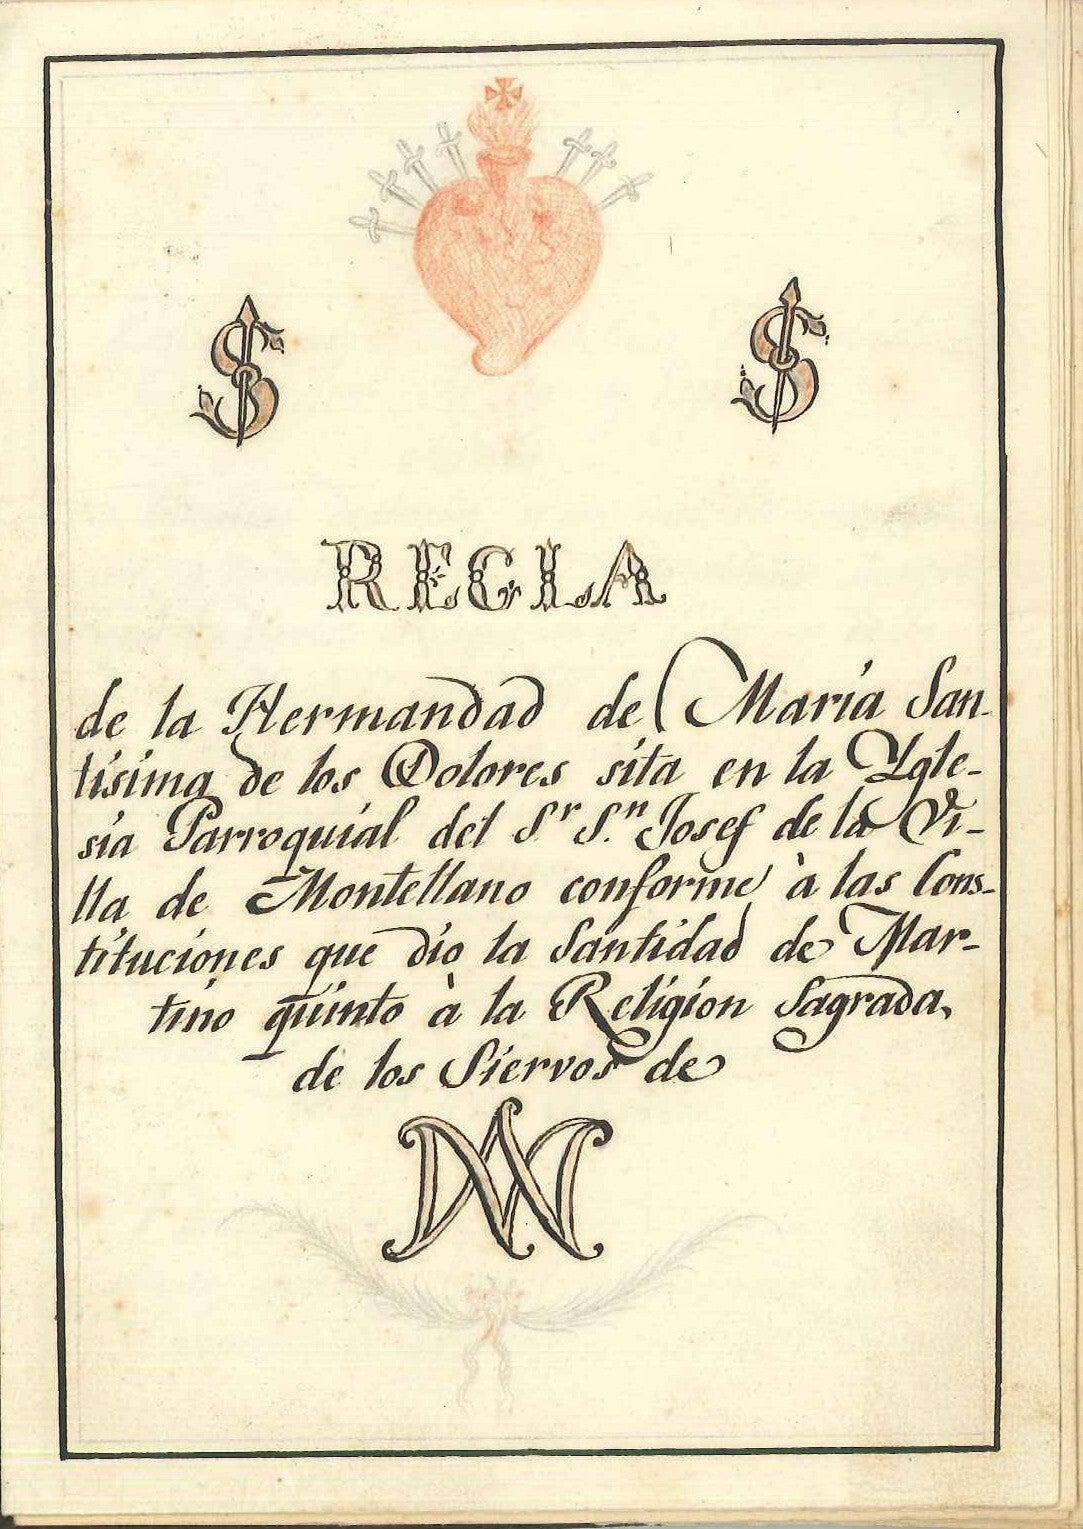 S S
REGLA
de la Hermandad de Maria San
tisima de los Dolores sita en la Ygle-
sia Parroquial del S.r S.n Josef de la Vi-
lla de Montellano conforme à las Cons-
tituciones que dio la Santidad de Mar-
tino quinto à la Religion Sagrada,
de los Siervos de